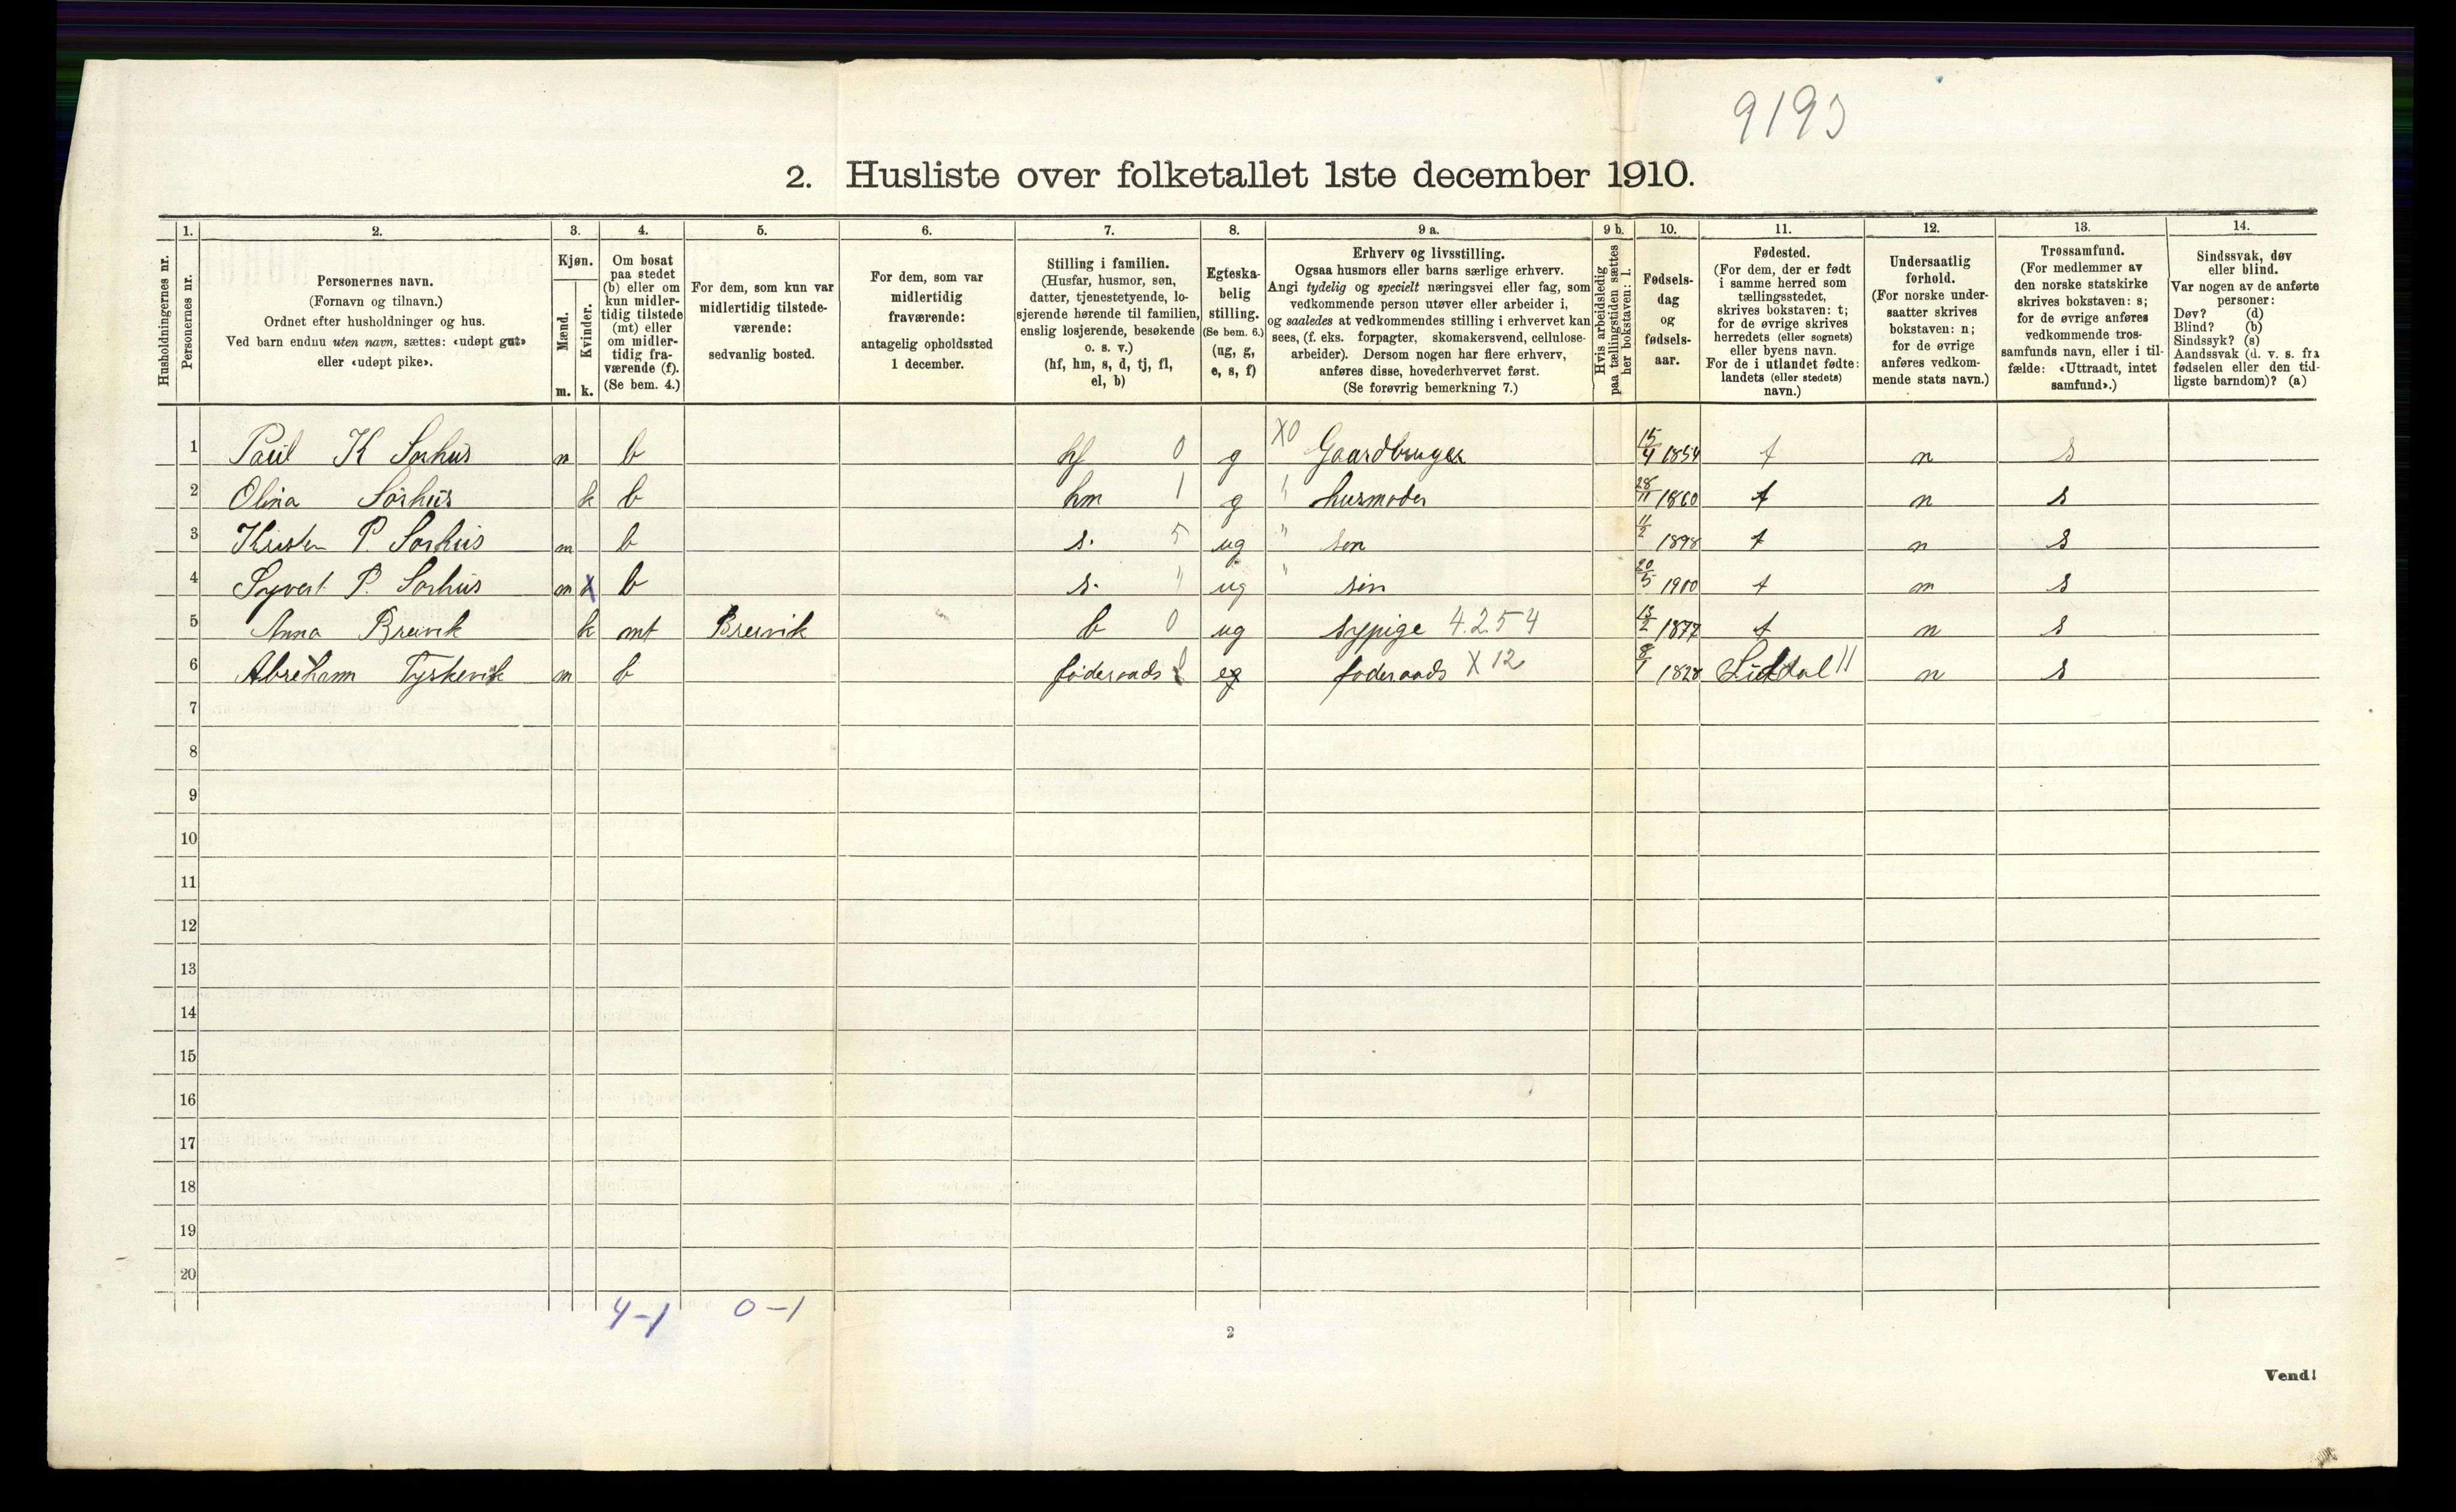 9193
2. Husliste over folketallet 1ste december 1910.
1. 2. 3. 4. 5. 6. 7. 8. 9 a. 9 b. 10. 11. 12. 13. 14.
Husholdningernes nr.
Personernes nr.
Personernes navn.
(Fornavn og tilnavn.)
Ordnet efter husholdninger og hus.
Ved barn endnu uten navn, sættes: «udøpt gut»
eller «udøpt pike».
Kjøn.
Mænd.
Kvinder.
m. k.
Om bosat
paa stedet
(b) eller om
kun midler-
tidig tilstede
(mt) eller
om midler-
tidig fra-
værende (f).
(Se bem. 4.)
For dem, som kun var
midlertidig tilstede-
værende:
sedvanlig bosted.
For dem, som var
midlertidig
fraværende:
antagelig opholdssted
1 december.
Stilling i familien.
(Husfar, husmor, søn,
datter, tjenestetyende, lo-
sjerende hørende til familien,
enslig losjerende, besøkende
o. s. v.)
(hf, hm, s, d, tj, fl,
el, b)
Egteska-
belig
stilling.
(Se bem. 6.)
(ug, g,
e, s, f)
Erhverv og livsstilling.
Ogsaa husmors eller barns særlige erhverv.
Angi tydelig og specielt næringsvei eller fag, som
vedkommende person utøver eller arbeider i,
og saaledes at vedkommendes stilling i erhvervet kan
sees, (f. eks. forpagter, skomakersvend, cellulose-
arbeider). Dersom nogen har flere erhverv,
anføres disse, hovederhvervet først.
(Se forøvrig bemerkning 7.)
Hvis arbeidsledig
paa tællingstiden sættes
her bokstaven: l.
Fødsels-
dag
og
fødsels-
aar.
Fødested.
(For dem, der er født
i samme herred som
tællingsstedet,
skrives bokstaven: t;
for de øvrige skrives
herredets (eller sognets)
eller byens navn.
For de i utlandet fødte:
landets (eller stedets)
navn.)
Undersaatlig
forhold.
(For norske under-
saatter skrives
bokstaven: n;
for de øvrige
anføres vedkom-
mende stats navn.)
Trossamfund.
(For medlemmer av
den norske statskirke
skrives bokstaven: s;
for de øvrige anføres
vedkommende tros-
samfunds navn, eller i til-
fælde: «Uttraadt, intet
samfund».)
Sindssvak, døv
eller blind.
Var nogen av de anførte
personer:
Døv? (d)
Blind? (b)
Sindssyk? (s)
Aandssvak (d. v. s. fra
fødselen eller den tid-
ligste barndom)? (a)
1 Paul K Sørhus m b hf 0 g X0 Gaardbruger 15/4 1854 t n s
2 Olina Sørhus k b hm 1 g " husmoder 28/11 1860 t n s
3 Kristen P. Sørhus m b s. 5 ug " søn 11/2 1898 t n s
4 Syvert P. Sørhus m k b s. " ug " søn 20/5 1900 t n s
5 Anna Breivik k mt Breivik b 0 ug sypige 4.254 13/2 1877 t n s
6 Abreham Tyskevik m b føderaads eg føderaads X 12 8/1 1828 n s
7
8
9
10
11
12
13
14
15
16
17
18
19
20
4-1 0-1
2
Vend!